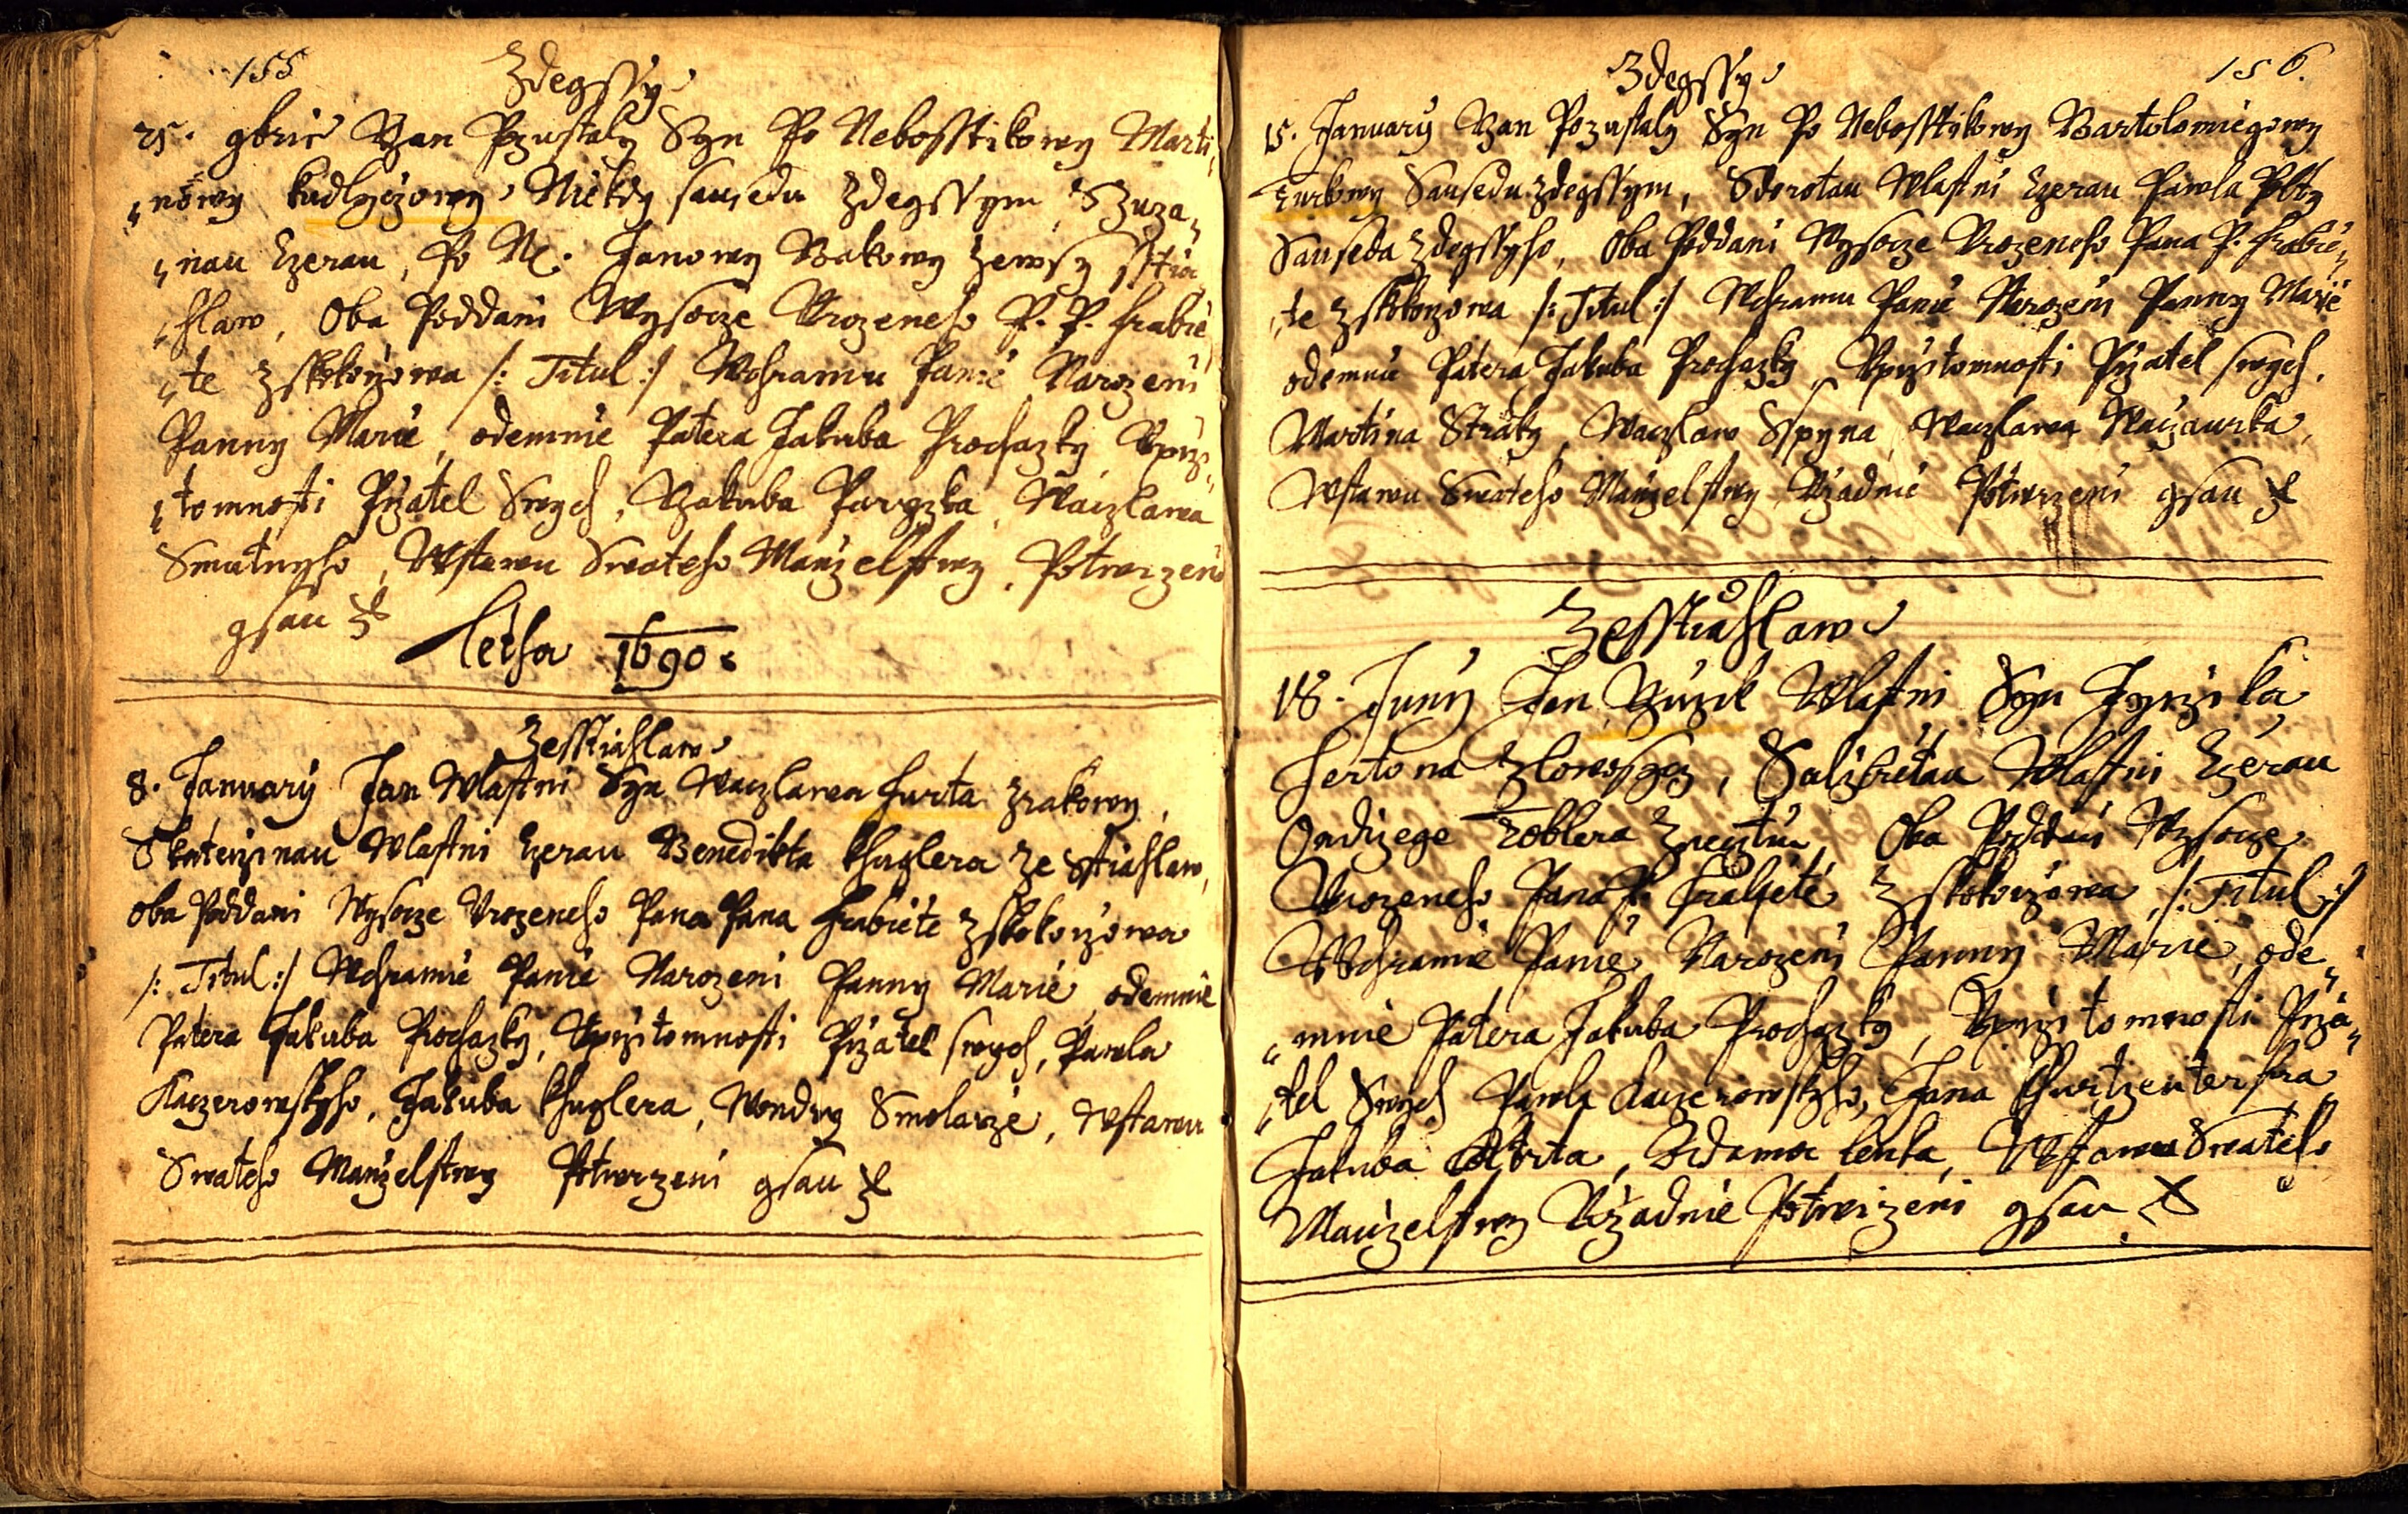 155
Zdegssy
25. 9bris Yan Pozustaly Syn Po Nebosstikowy Marti„
„nowy Kudlyczowy Niekdy sauseda Zdegssym, S Zuza„
„nau Czerau, Po N. Janowy Bakowy Zewsy sstia
„hlaw, Oba Poddani Wysocze Urozeneho P. P. hrabie
„te z Kokorzowa /: Titul :/ Wchramu Panie Narozeni
Panny Marie, odemnie Patera Jakuba Prochazky, Vprzi„
„tomnosti Przatel Swych, Yakuba Paryzka, Waczlawa
Smutnyho, Wstawu Swateho Manzelstwy, Potwrzeni
gsau
letha 1690.
Zesstiahlaw
8. January Jan Wlastni Syn Waczlawa hurta Zrakowy,
S Katerzinau Wlastni Czerau Benedikta Khuglera Ze Stiahlaw,
oba Poddani Wysocze Urozeneho Pana Pana hrabiete z Kokorzowa
/: Titul :/ Wchramie Panie Narozeni Panny Marie, odemnie
Patera Jakuba Prochazky, Vprzitomnosti Przatel swych, Pawla
Kaczerowskyho, Jakuba Khuglera, Wondry Smolarze, Wstawu
Swateho Manzelstwy Potwrzeni gsau
156.
Zdegssy
15. January Yan Pozustaly Syn Po Nebosstikowy Bartolomiegowy
Turkowy Sauseda Zdegssym, S dorotau Wlastni Czerau Pawla Polty
Sauseda Zdegssyho, Oba Poddani Wysocze Urozeneho Pana P. hrabie„
„te z Kokorzowa /: Titul :/ Wchramu Panie Narozeni Panny Marie
odemnie Patera Jakuba Prochazky, Vprzitomnosti Przatel swych,
Martina Straky, Waczlaw Sspyna, Waczlawa Maczaurka,
Wstawu Swateho Manzelstwy Rzadnie Potwrzeni gsau
Zesstiahlaw
18. Juny Jan Wlastni Syn Jyrzika
hertona Zlowossycz, S alzbietau Wlastni Czerau
Ondrzege Toblera Oba Poddani Wysocze
Urozeneho Pana P. hrabiete z Kokorzowa, /: Titul :/
Wchramie Panie Narozeni Panny Marie, ode„
„mnie Patera Jakuba Prochazky, Vprzitomnosti Prza„
„tel Swych Pawla Kaczerowskyho, Jana
Jakuba Adama lenka, Wstawu Swateho
Manzelstwy Rzadnie Potwrzeni gsau